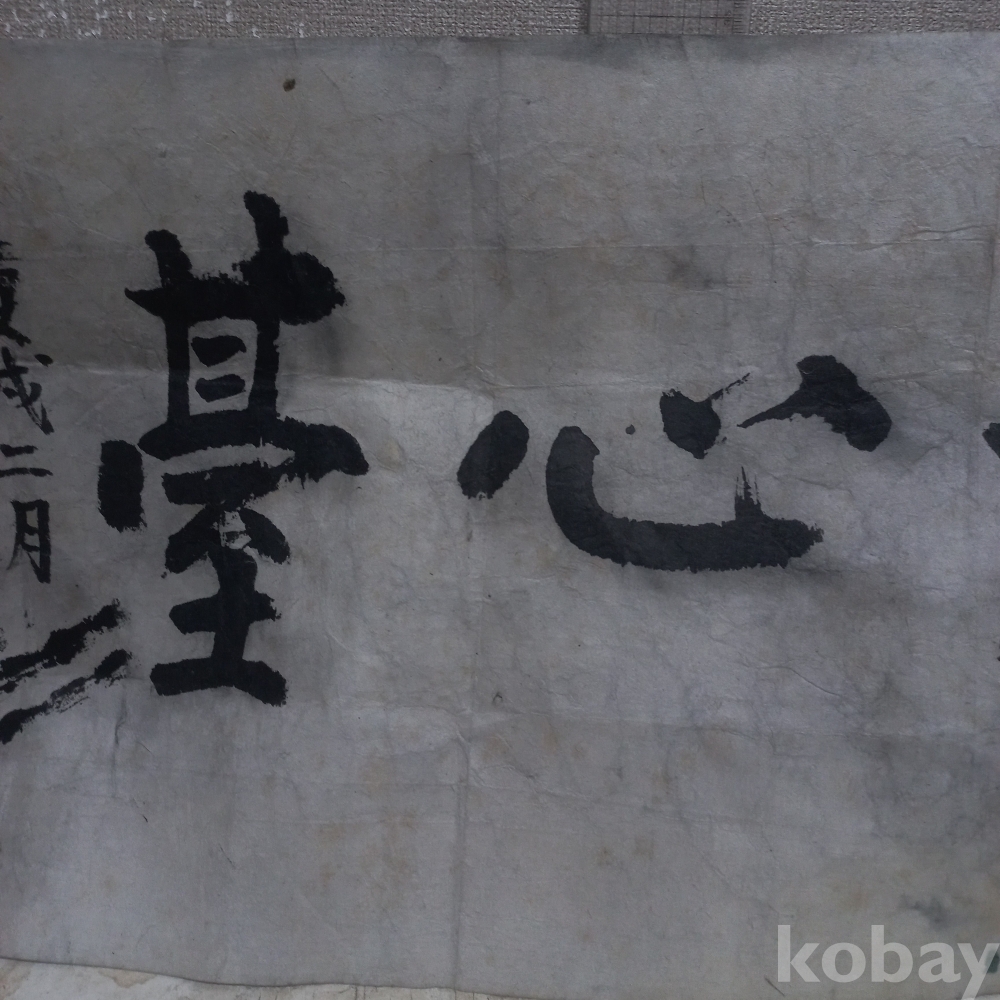 心臺
戌二月
kobay